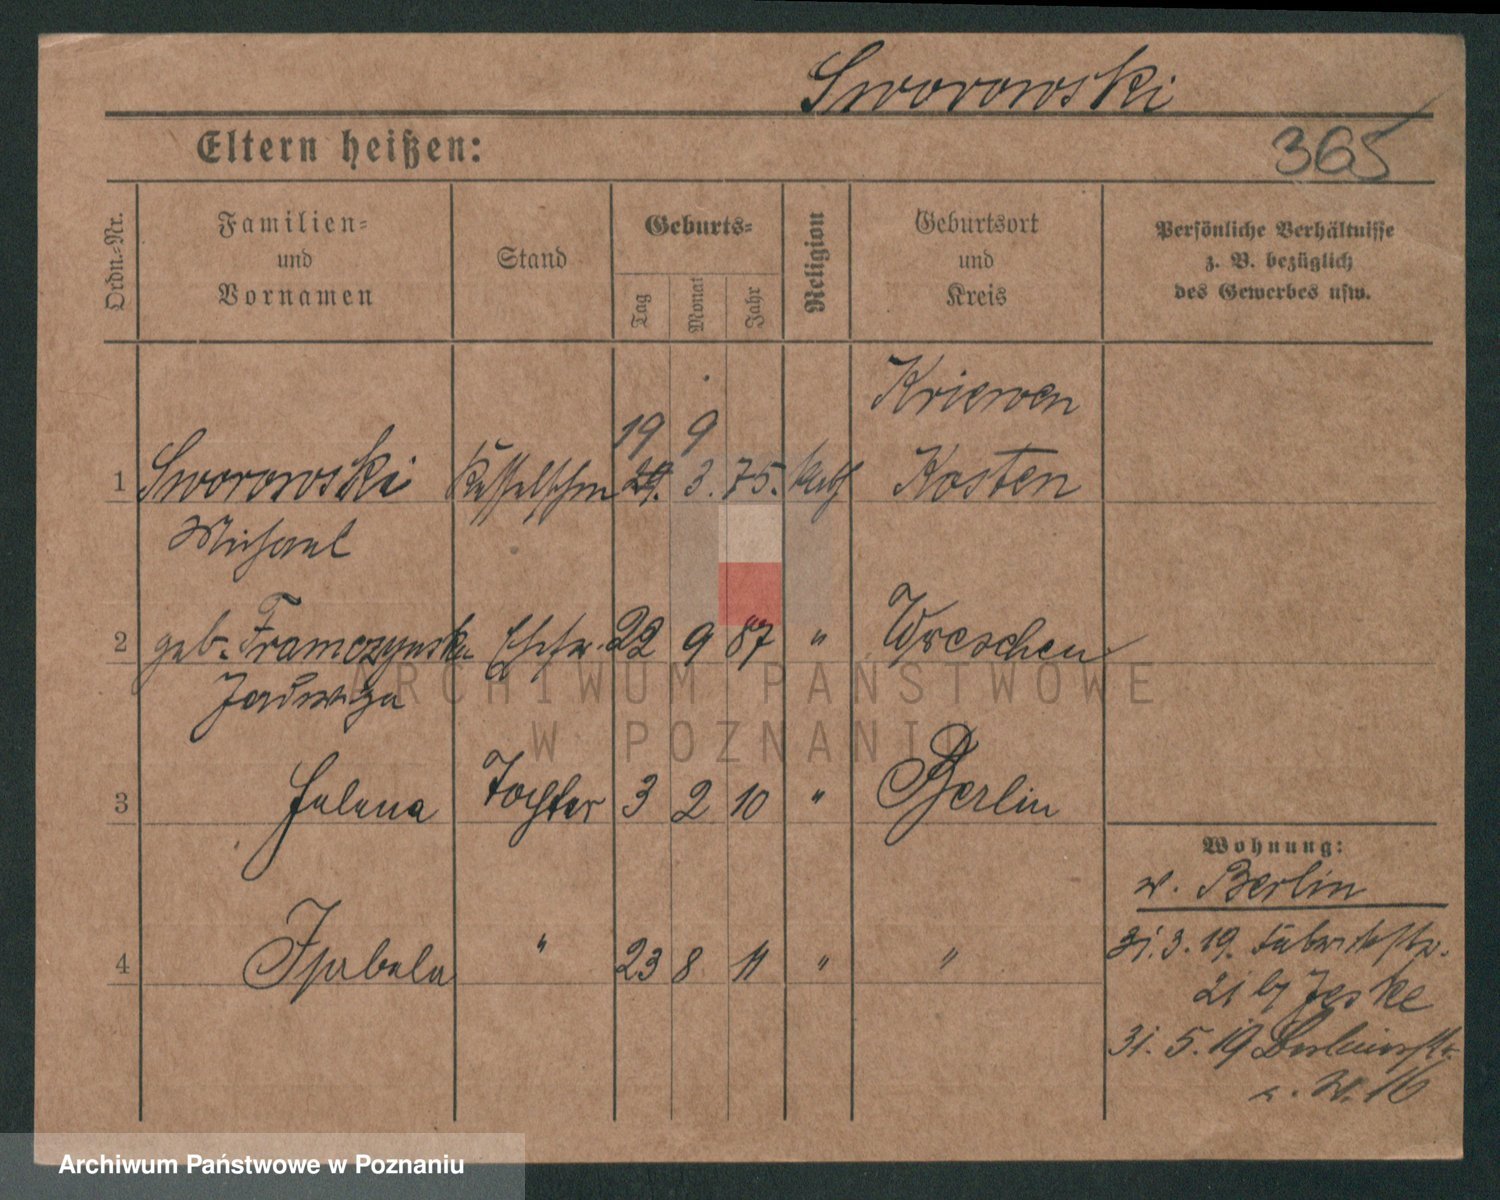 Sworowski
Eltern heißen:
365
Ordn.-Nr.
Familien-
und
Vornamen
Stand
Geburts-
Tag
Monat
Jahr
Religion
Geburtsort
und
Kreis
Persönliche Verhältnisse
z. B. bezüglich
des Gewerbes usw.
Kriewen
19 9
1 Sworowski 3. 75. kath Kosten
Michael
2 geb. Franczynska Ehefr. 22 9 87 " Wreschen
Jadwiga
3 Helena Tochter 3 2 10 " Berlin
4 Isabela " 23 8 11 " "
Wohnung:
v. Berlin
31. 3. 19. Fabrikstr.
21 b/ Jeske
31. 5. 19 Berlinerstr.
16
ARCHIWUM PAŃSTWOWE
W POZNANIU
Archiwum Państwowe w Poznaniu